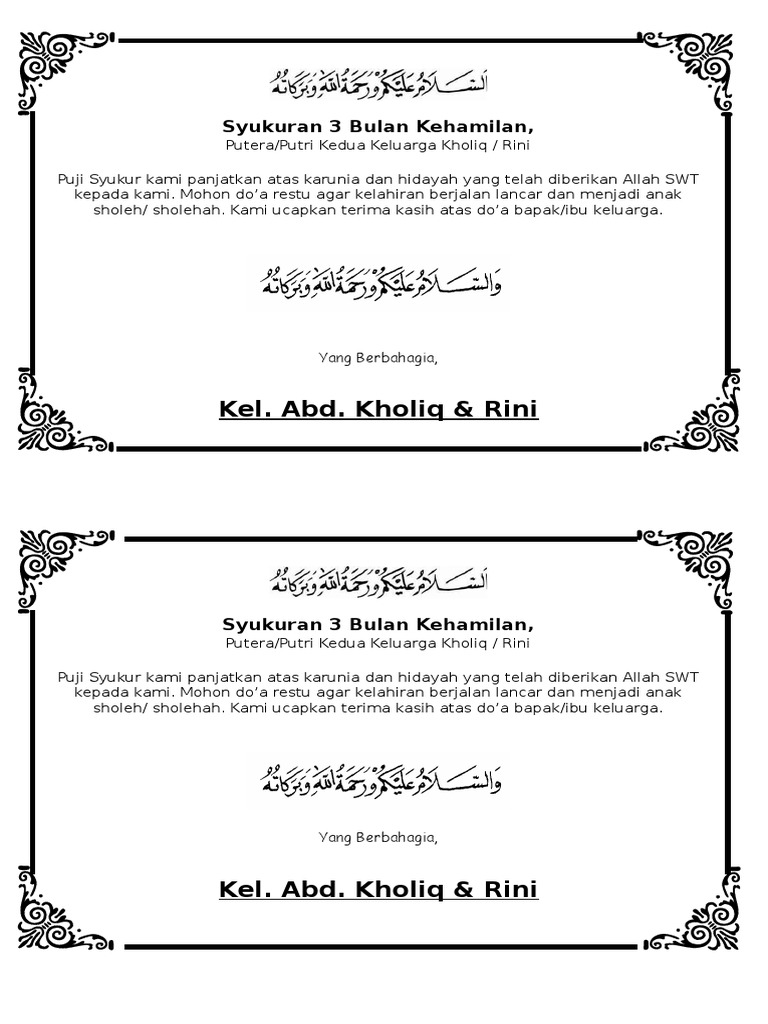 اَلسَّلَامُ عَلَيْكُمْ وَرَحْمَةُ اللهِ وَبَرَكَاتُهُ
Syukuran 3 Bulan Kehamilan,
Putera/Putri Kedua Keluarga Kholiq / Rini
Puji Syukur kami panjatkan atas karunia dan hidayah yang telah diberikan Allah SWT
kepada kami. Mohon do’a restu agar kelahiran berjalan lancar dan menjadi anak
sholeh/ sholehah. Kami ucapkan terima kasih atas do’a bapak/ibu keluarga.
وَالسَّلَامُ عَلَيْكُمْ وَرَحْمَةُ اللهِ وَبَرَكَاتُهُ
Yang Berbahagia,
Kel. Abd. Kholiq & Rini
اَلسَّلَامُ عَلَيْكُمْ وَرَحْمَةُ اللهِ وَبَرَكَاتُهُ
Syukuran 3 Bulan Kehamilan,
Putera/Putri Kedua Keluarga Kholiq / Rini
Puji Syukur kami panjatkan atas karunia dan hidayah yang telah diberikan Allah SWT
kepada kami. Mohon do’a restu agar kelahiran berjalan lancar dan menjadi anak
sholeh/ sholehah. Kami ucapkan terima kasih atas do’a bapak/ibu keluarga.
وَالسَّلَامُ عَلَيْكُمْ وَرَحْمَةُ اللهِ وَبَرَكَاتُهُ
Yang Berbahagia,
Kel. Abd. Kholiq & Rini